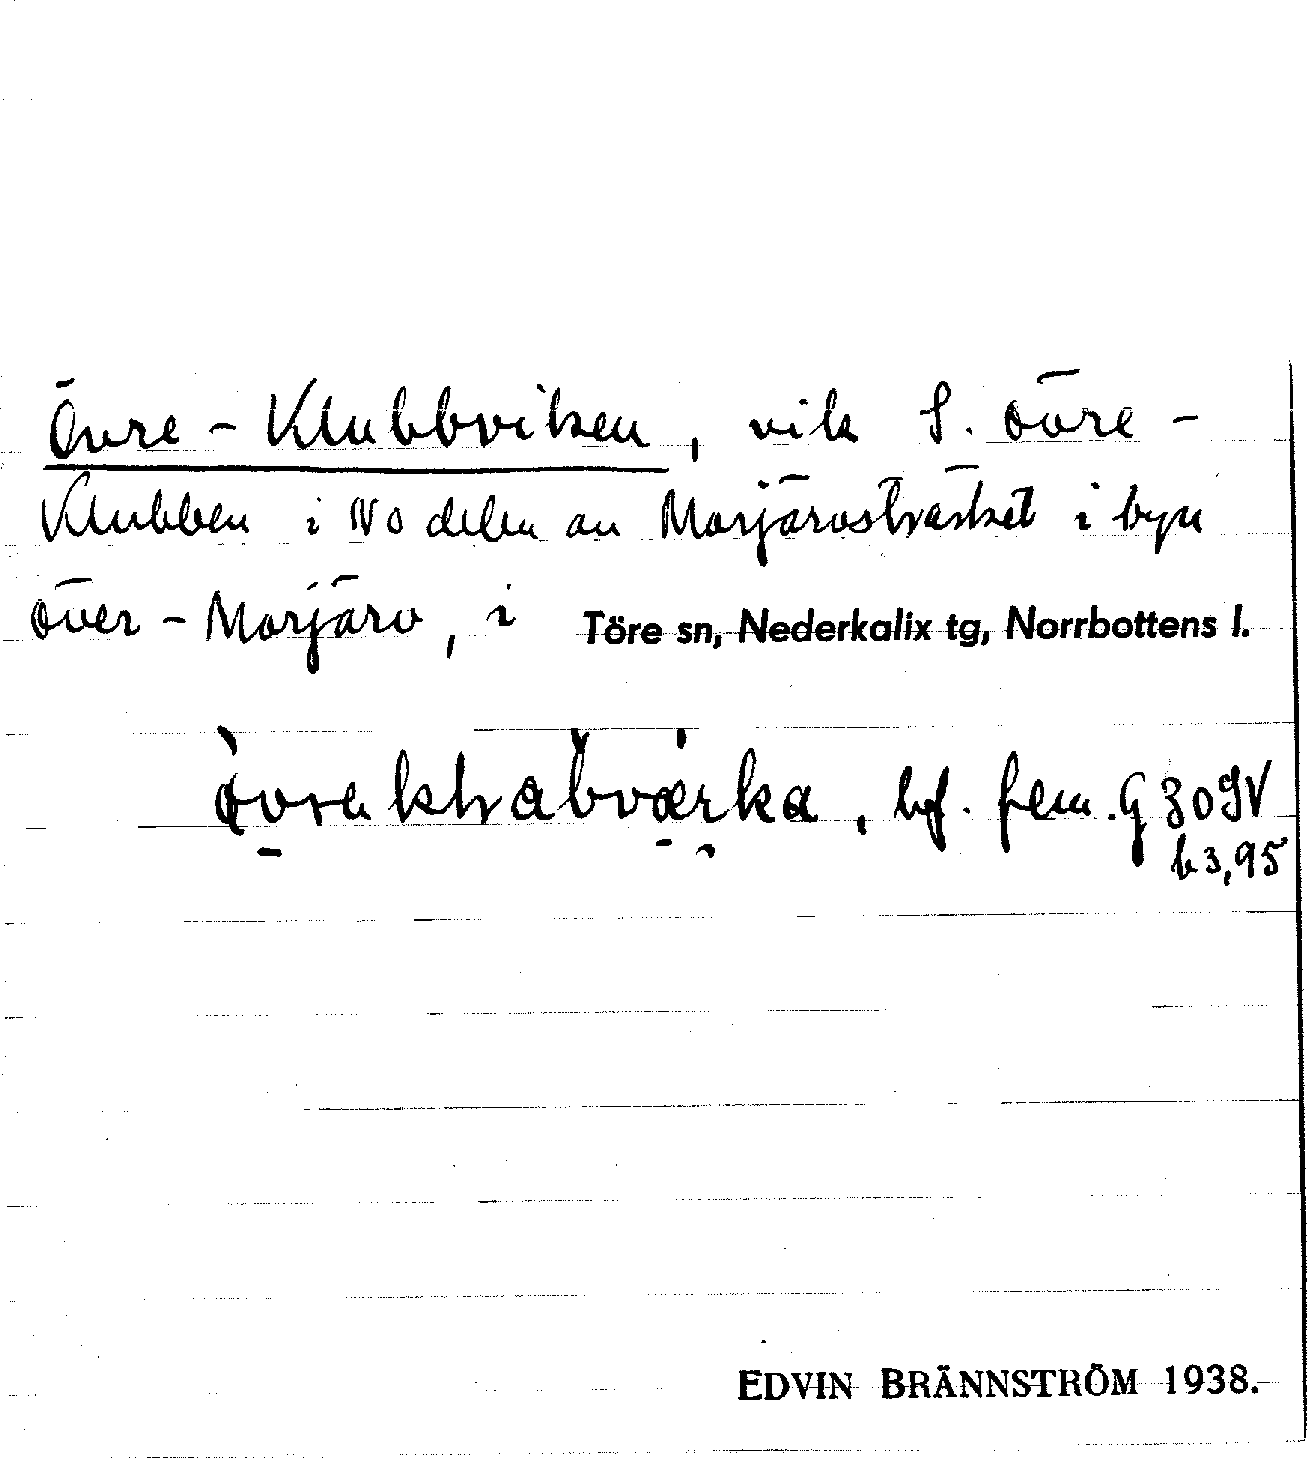 Övre-Klubbviken, vik S. Övre-
Klubben i NO delen av Morjärvsträsket i byn
Över-Morjärv, i Töre sn, Nederkalix tg, Norrbottens l.
bf. fem. G 30 SV
b 3,95
EDVIN BRÄNNSTRÖM 1938.